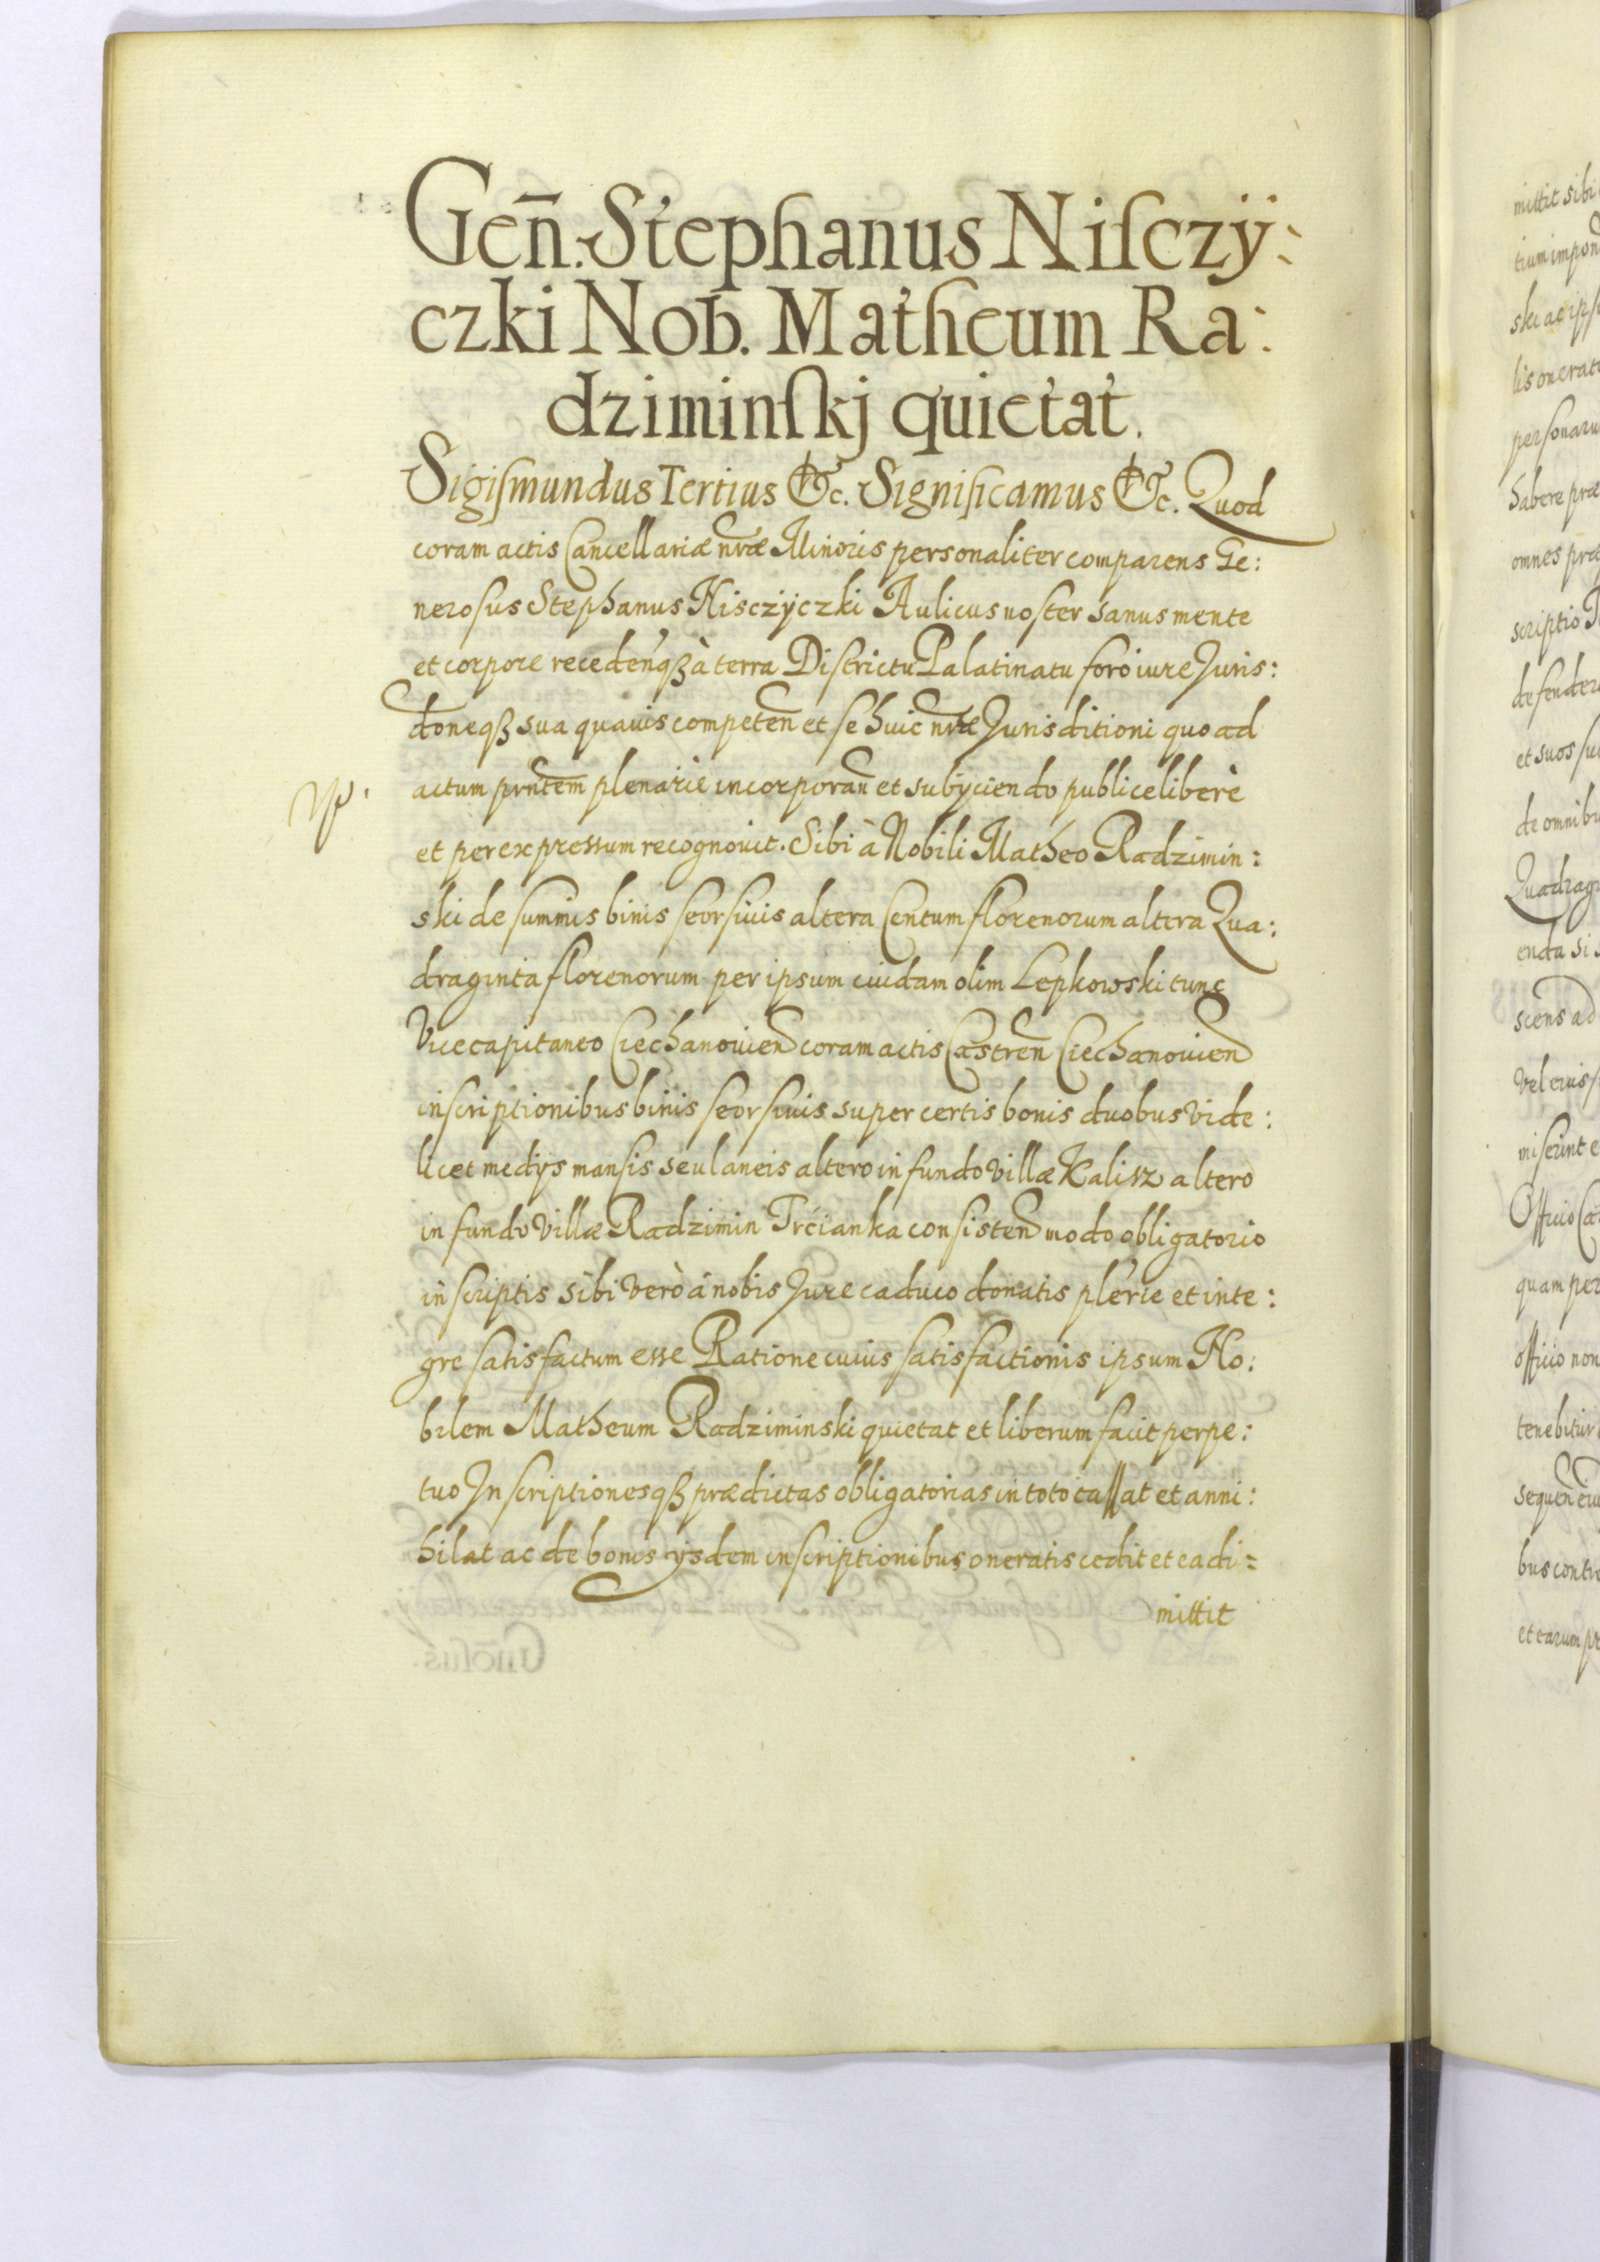 Gen̄. Stephanus Niſczÿ:
czki Nob. Matheum Ra:
dziminſkj quietat.
Sigiſmundus Tertius &c. Significamus &c. Quod
coram actis Cancellariæ nr̄æ Minoris personaliter comparens Ge:
nerosus Stephanus Nisczÿczki Aulicus noster sanus mente
et corpore recedeńqꝫ à terra Districtu Palatinatu foro iure Juris:
dōneqꝫ sua quauis competen̄ et se huic nr̄æ Jurisditioni quo ad
actum prn̄tem plenariè incorporan̄ et subÿciendo publice liberè
et per expressum recognouit. Sibi à Nobili Matheo Radzimin:
ski de summis binis seorsiuis altera Centum florenorum altera Qua:
draginta florenorum per ipsum cuidam olim Lepkowski tunc
Vicecapitaneo Ciechanouien̄ coram actis Castren̄ Ciechanouien̄
inscriptionibus binis seorsiuis super certis bonis duobus vide:
licet medÿs mansis seu laneis altero in fundo villæ Kalisz altero
in fundo villæ Radzimin Trćianka consisten̄ modo obligatorio
inscriptis sibi verò à nobis Jure caduco donatis pler̄ie et inte:
gre satisfactum esse Ratione cuius satisfactionis ipsum No:
bilem Matheum Radziminski quietat et liberum facit perpe:
tuo Inscriptionesqꝫ prædictas obligatorias in toto cassat et anni:
hilat ac de bonis ÿsdem inscriptionibus oneratis cedit et ea di=
mittit
mittit sibi
tium impon
ski ac ips
lis onerat
personaru
habere præ
omnes præ
scriptio
defender
et suos su
de omnibu
Quadrag
enda si
scens ad
vel eius
miserint e
Officio Ca
quam per
officio non
tenebitur
sequen̄ eiu
bus contr
et earum pr